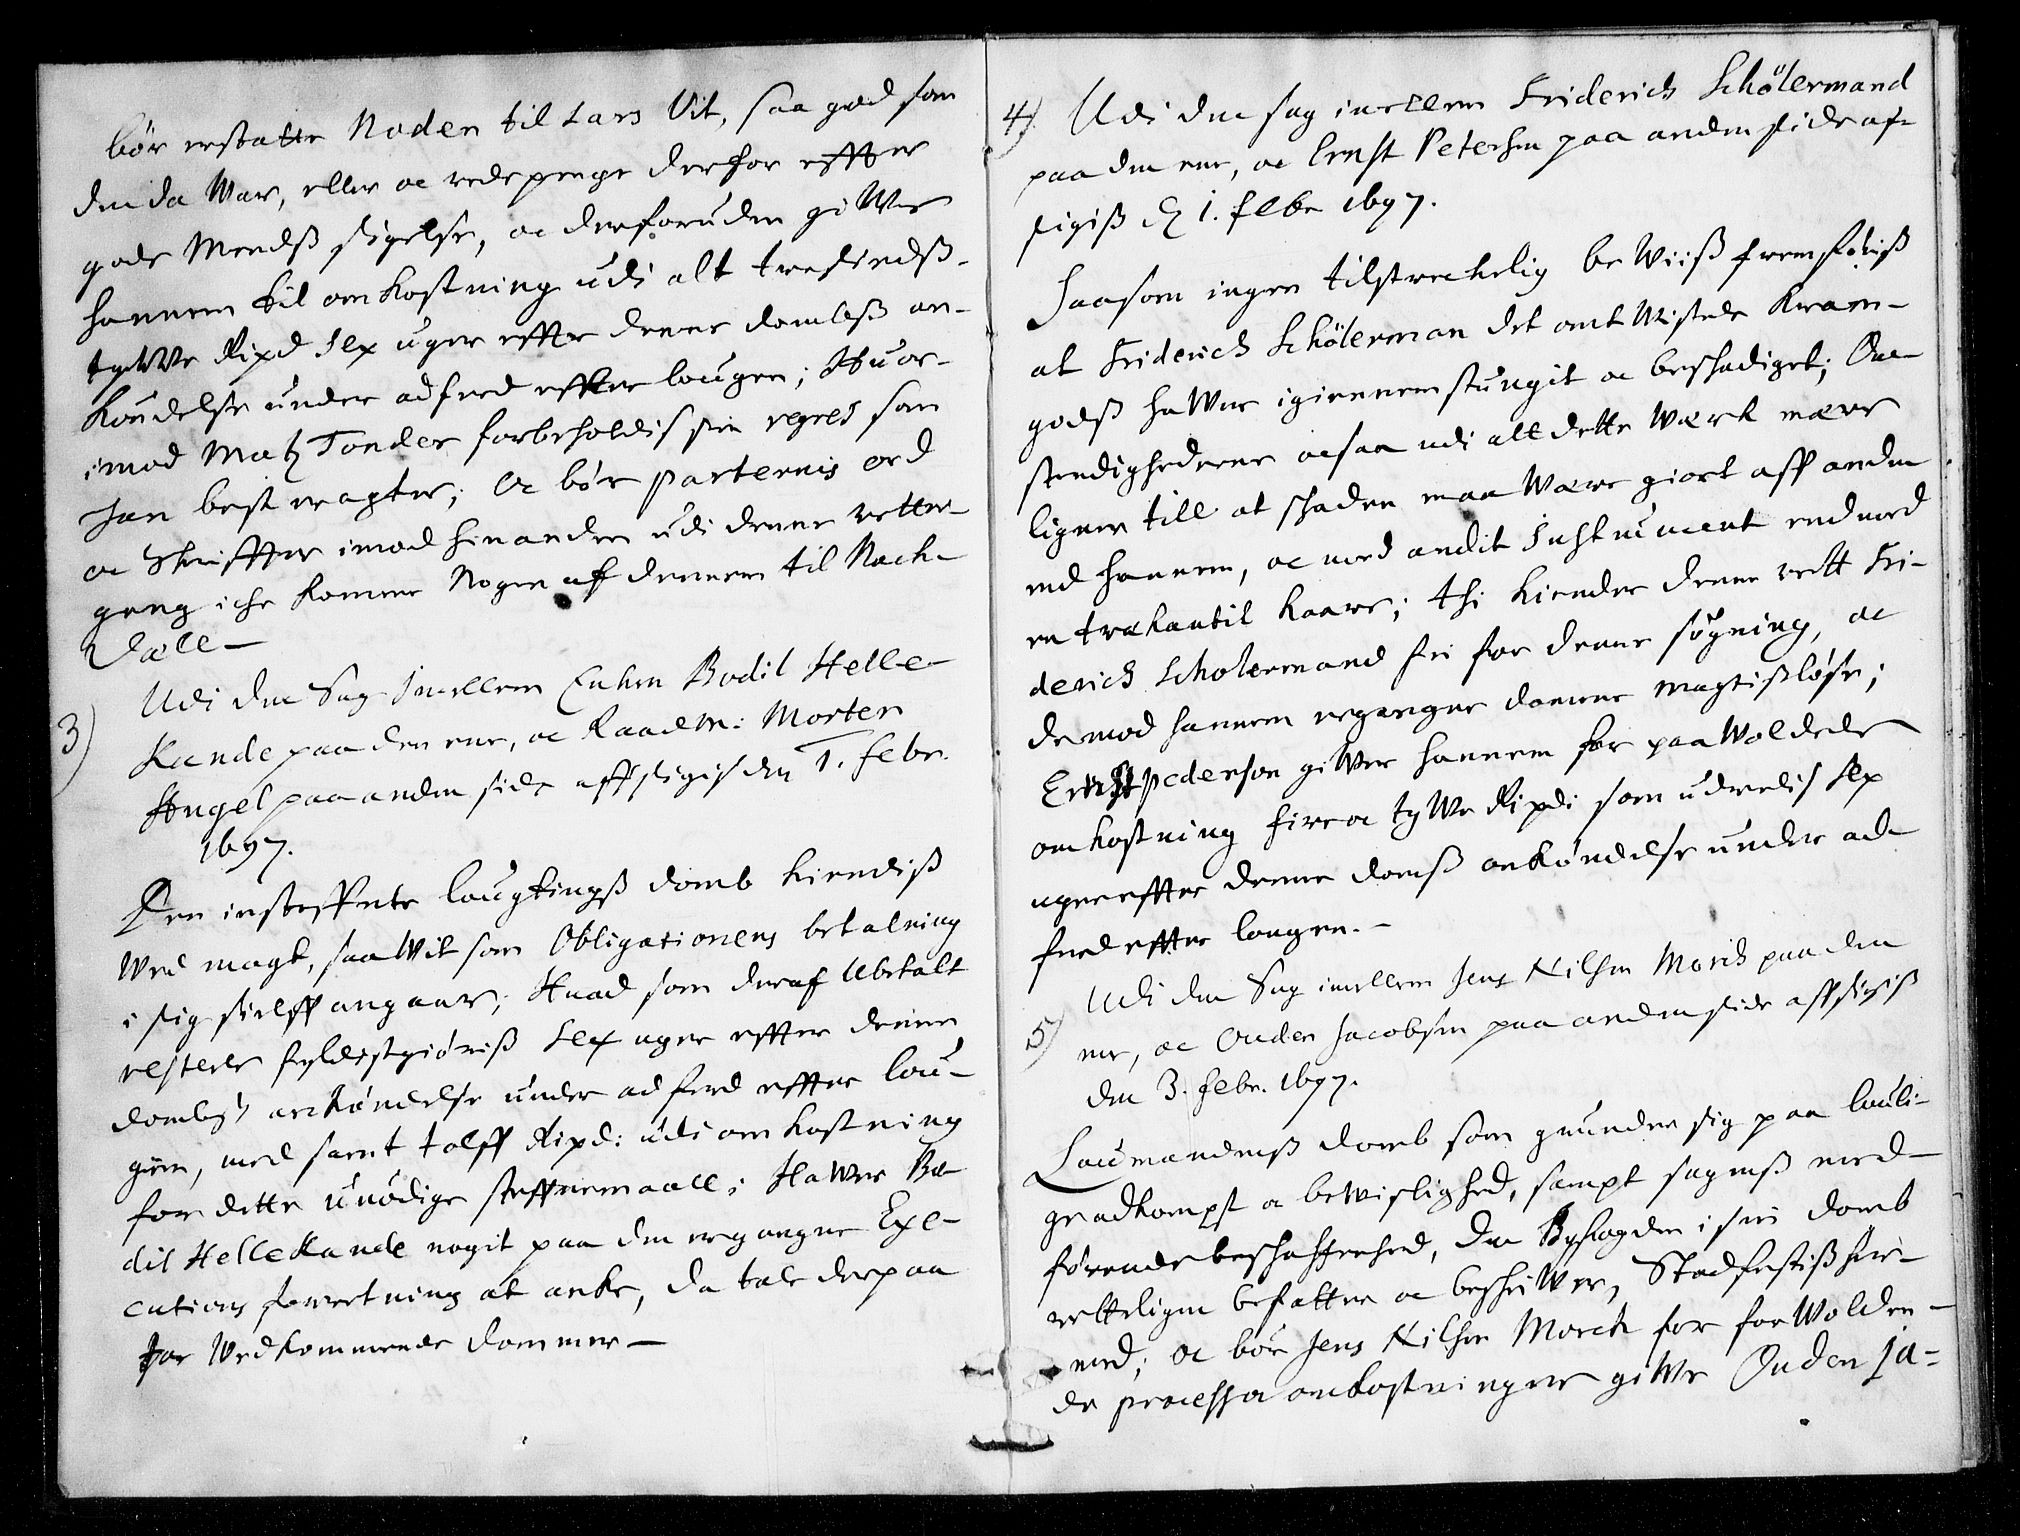 bör erstatte Noden til Lars Vit, saa god som
den da War, eller oc rede penge derfor effter
gode Mendß sigelse, oc derforuden giWer
hannem til omkostning udi alt tresindß-
tyWe Rixd Sex uger effter denne dombß an-
kyndelse under adferd effter lougen; Huor-
imod Matz Tonder forbeholdis sin regres som
han best eragter; Oc bör parternis ord
oc Skriffter imod hinanden udi denne retter-
gang iche komme Nogen af dennem til Nach-
dæll -
3) Udi den Sag Imellem Enken Bodil Helle-
Kande paa den ene, oc Raadm: Morten
Hugel paa anden side affsigis den 1. Febr.
1697.
Den instefnte lougtingß domb kiendiß
Wed magt, saa Wit som Obligationens betalning
i sig sielff angaar; Huad som deraf Ubetalt
resterer fyldistgiöriß Sex uger effter denne
dombs ankyndelse under adferd effter lou-
gen, med samt tolff Rixd: udi omkostning
for dette unödige steffnemaall; HaWer Bo-
dil HelleKande nogit paa den ergangne Exe-
cutions forretning at anke, da tale derpaa
for Vedkommende dommer -
4) Udi den sag imellem Friderich Schölermand
paa den ene, oc Ernst Petersen paa anden side af-
sigiß d. 1. Febr 1697.
Saasom ingen tilstrechelig beWiiß fremföriß
at Friderich Schölerman det omtWistede Kram-
godß haWer igiennemstungit oc beschadiget; Om-
stendighederne ocsaa udi alt dette Werk mere
ligner till at schaden maa Were giort aff anden
end hannem, oc med andit Instrument end med
en trækantit kaarde; thi kiender denne rett Fri-
derich Scholermand fri for denne sögning, oc
de mod hannem ergangne domme magtißlöse;
Ernst Pederson giWer hannem for paaWoldede
omkostning fire oc tyWe Rixdr som udredis Sex
uger effter denne domß ankyndelse under ad-
ferd effter lougen. -
5) Udi den Sag imellem Jens Nilsen Morch paa den
ene, oc Ouden Jacobsen paa anden side affsigiß
den 3. Febr. 1697.
Laumandenß domb som grunder sig paa louli-
ge adkompst oc bewislighed, sampt sagenß med-
förende beschaffenhed, den Byfogden i sin domb
rettelgen befatter oc beskriWer, Stadfestiß her-
med; oc bör Jens Nilsen Morch for forWolden-
de process oc omkostninger giWe Ouden Ja-